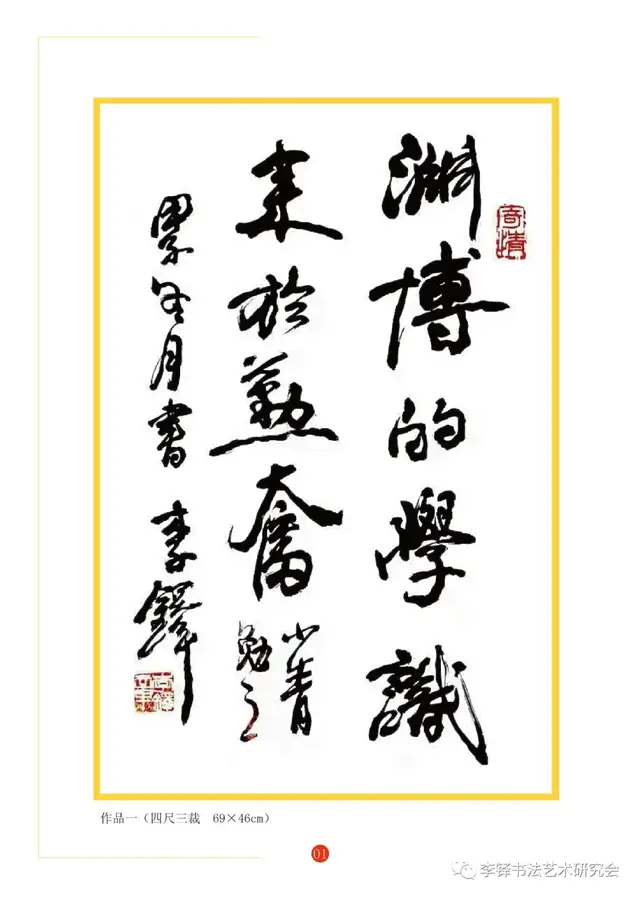 寄情
淵博的學識
来於勤奮
小青
勉之
冬月書 李鐸
作品一（四尺三裁 69×46cm）
01
李铎书法艺术研究会